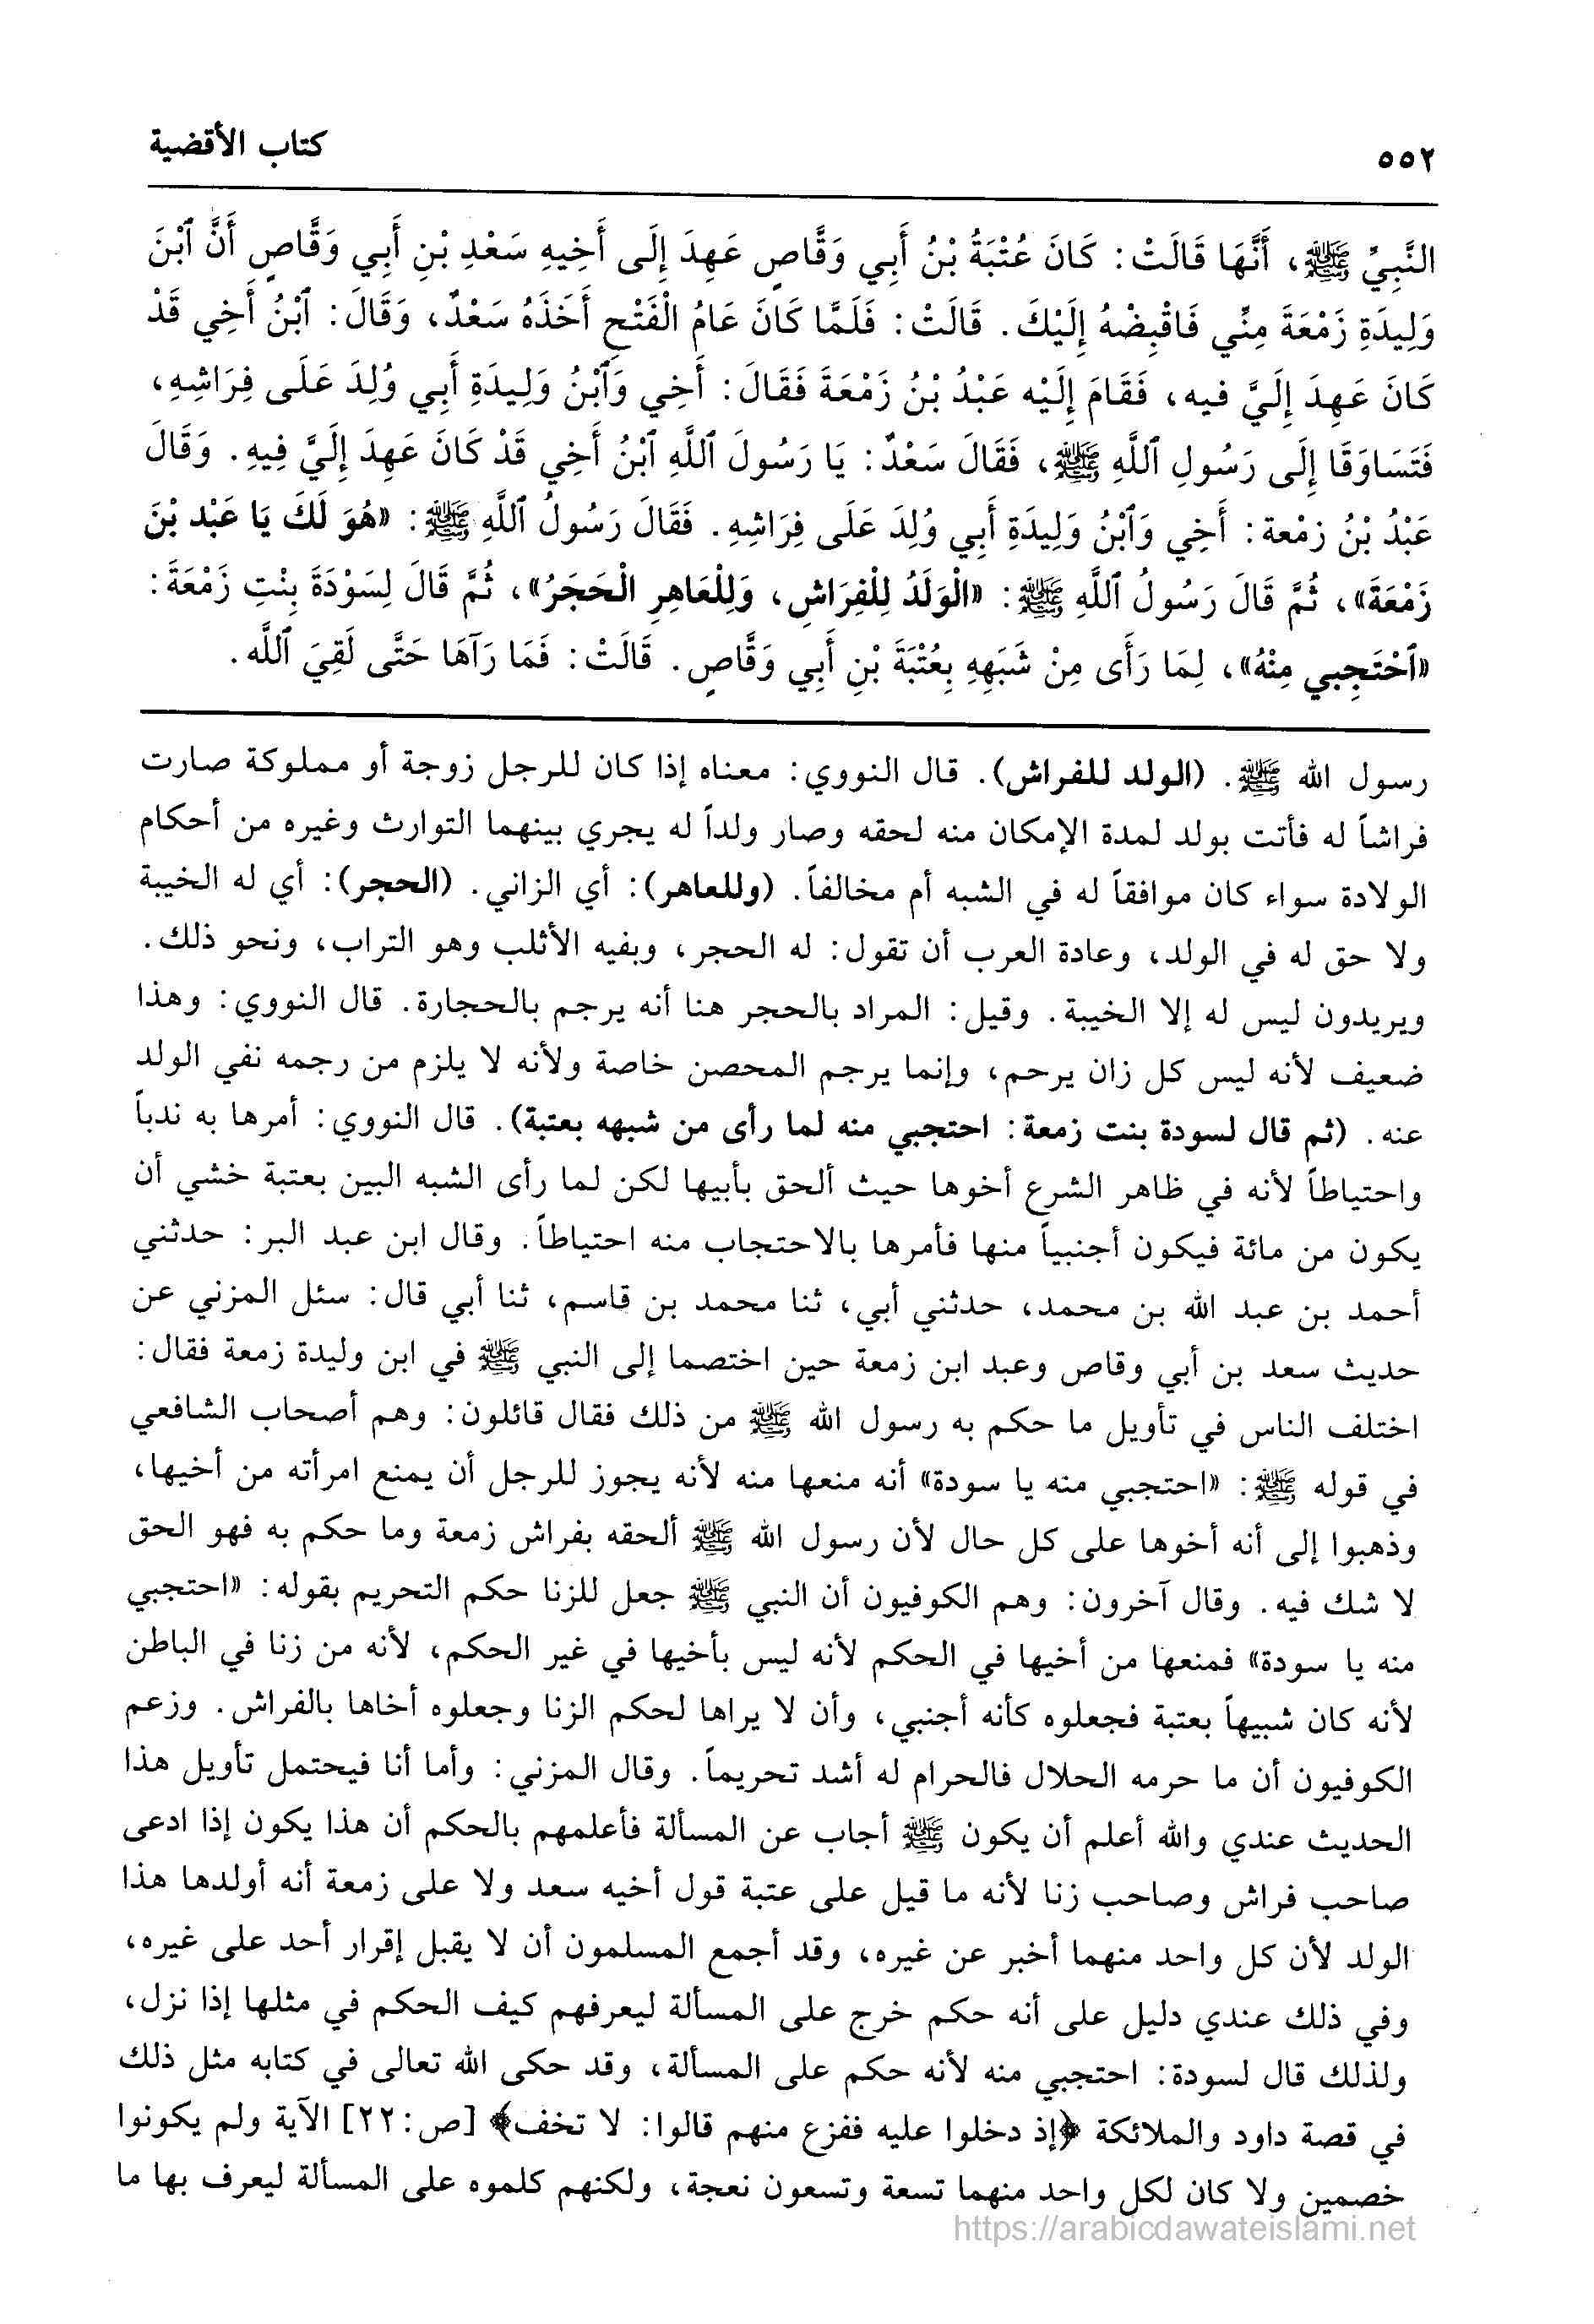 ٥٥٢
كتاب الأقضية
النَّبِيِّ ﷺ، أَنَّهَا قَالَتْ: كَانَ عُتْبَةُ بْنُ أَبِي وَقَّاصٍ عَهِدَ إِلَى أَخِيهِ سَعْدِ بْنِ أَبِي وَقَّاصٍ أَنَّ ٱبْنَ
وَلِيدَةِ زَمْعَةَ مِنِّي فَاقْبِضْهُ إِلَيْكَ. قَالَتْ: فَلَمَّا كَانَ عَامُ الْفَتْحِ أَخَذَهُ سَعْدٌ، وَقَالَ: ٱبْنُ أَخِي قَدْ
كَانَ عَهِدَ إِلَيَّ فيه، فَقَامَ إِلَيْه عَبْدُ بْنُ زَمْعَةَ فَقَالَ: أَخِي وَٱبْنُ وَلِيدَةِ أَبِي وُلِدَ عَلَى فِرَاشِهِ،
فَتَسَاوَقَا إِلَى رَسُولِ ٱللَّهِ ﷺ، فَقَالَ سَعْدٌ: يَا رَسُولَ ٱللَّهِ ٱبْنُ أَخِي قَدْ كَانَ عَهِدَ إِلَيَّ فِيهِ. وَقَالَ
عَبْدُ بْنُ زمْعة: أَخِي وَٱبْنُ وَلِيدَةِ أَبِي وُلِدَ عَلَى فِرَاشِهِ. فَقَالَ رَسُولُ ٱللَّهِ ﷺ: «هُوَ لَكَ يَا عَبْد بْنَ
زَمْعَةَ»، ثُمَّ قَالَ رَسُولُ ٱللَّهِ ﷺ: «الْوَلَدُ لِلْفِرَاشِ، وَلِلْعَاهِرِ الْحَجَرُ»، ثُمَّ قَالَ لِسَوْدَةَ بِنْتِ زَمْعَةَ:
«ٱحْتَجِبي مِنْهُ»، لِمَا رَأَى مِنْ شَبَهِهِ بِعُتْبَةَ بْنِ أَبِي وَقَّاصٍ. قَالَتْ: فَمَا رَآهَا حَتَّى لَقِيَ ٱللَّه.
رسول الله ﷺ. (الولد للفراش). قال النووي: معناه إذا كان للرجل زوجة أو مملوكة صارت
فراشاً له فأتت بولد لمدة الإمكان منه لحقه وصار ولداً له يجري بينهما التوارث وغيره من أحكام
الولادة سواء كان موافقاً له في الشبه أم مخالفاً. (وللعاهر): أي الزاني. (الحجر): أي له الخيبة
ولا حق له في الولد، وعادة العرب أن تقول: له الحجر، وبفيه الأثلب وهو التراب، ونحو ذلك.
ويريدون ليس له إلا الخيبة. وقيل: المراد بالحجر هنا أنه يرجم بالحجارة. قال النووي: وهذا
ضعيف لأنه ليس كل زان يرحم، وإنما يرجم المحصن خاصة ولأنه لا يلزم من رجمه نفي الولد
عنه. (ثم قال لسودة بنت زمعة: احتجبي منه لما رأى من شبهه بعتبة). قال النووي: أمرها به ندباً
واحتياطاً لأنه في ظاهر الشرع أخوها حيث ألحق بأبيها لكن لما رأى الشبه البين بعتبة خشي أن
يكون من مائة فيكون أجنبياً منها فأمرها بالاحتجاب منه احتياطاً. وقال ابن عبد البر: حدثني
أحمد بن عبد الله بن محمد، حدثني أبي، ثنا محمد بن قاسم، ثنا أبي قال: سئل المزني عن
حديث سعد بن أبي وقاص وعبد ابن زمعة حين اختصما إلى النبي ﷺ في ابن وليدة زمعة فقال:
اختلف الناس في تأويل ما حكم به رسول الله ﷺ من ذلك فقال قائلون: وهم أصحاب الشافعي
في قوله ﷺ: «احتجبي منه يا سودة» أنه منعها منه لأنه يجوز للرجل أن يمنع امرأته من أخيها،
وذهبوا إلى أنه أخوها على كل حال لأن رسول الله ﷺ ألحقه بفراش زمعة وما حكم به فهو الحق
لا شك فيه. وقال آخرون: وهم الكوفيون أن النبي ﷺ جعل للزنا حكم التحريم بقوله: «احتجبي
منه يا سودة» فمنعها من أخيها في الحكم لأنه ليس بأخيها في غير الحكم، لأنه من زنا في الباطن
لأنه كان شبيهاً بعتبة فجعلوه كأنه أجنبي، وأن لا يراها لحكم الزنا وجعلوه أخاها بالفراش. وزعم
الكوفيون أن ما حرمه الحلال فالحرام له أشد تحريماً. وقال المزني: وأما أنا فيحتمل تأويل هذا
الحديث عندي والله أعلم أن يكون ﷺ أجاب عن المسألة فأعلمهم بالحكم أن هذا يكون إذا ادعى
صاحب فراش وصاحب زنا لأنه ما قيل على عتبة قول أخيه سعد ولا على زمعة أنه أولدها هذا
الولد لأن كل واحد منهما أخبر عن غيره، وقد أجمع المسلمون أن لا يقبل إقرار أحد على غيره،
وفي ذلك عندي دليل على أنه حكم خرج على المسألة ليعرفهم كيف الحكم في مثلها إذا نزل،
ولذلك قال لسودة: احتجبي منه لأنه حكم على المسألة، وقد حكى الله تعالى في كتابه مثل ذلك
في قصة داود والملائكة ﴿إذ دخلوا عليه ففزع منهم قالوا: لا تخف﴾ [ص:٢٢] الآية ولم يكونوا
خصمين ولا كان لكل واحد منهما تسعة وتسعون نعجة، ولكنهم كلموه على المسألة ليعرف بها ما
https://arabicdawateislami.net